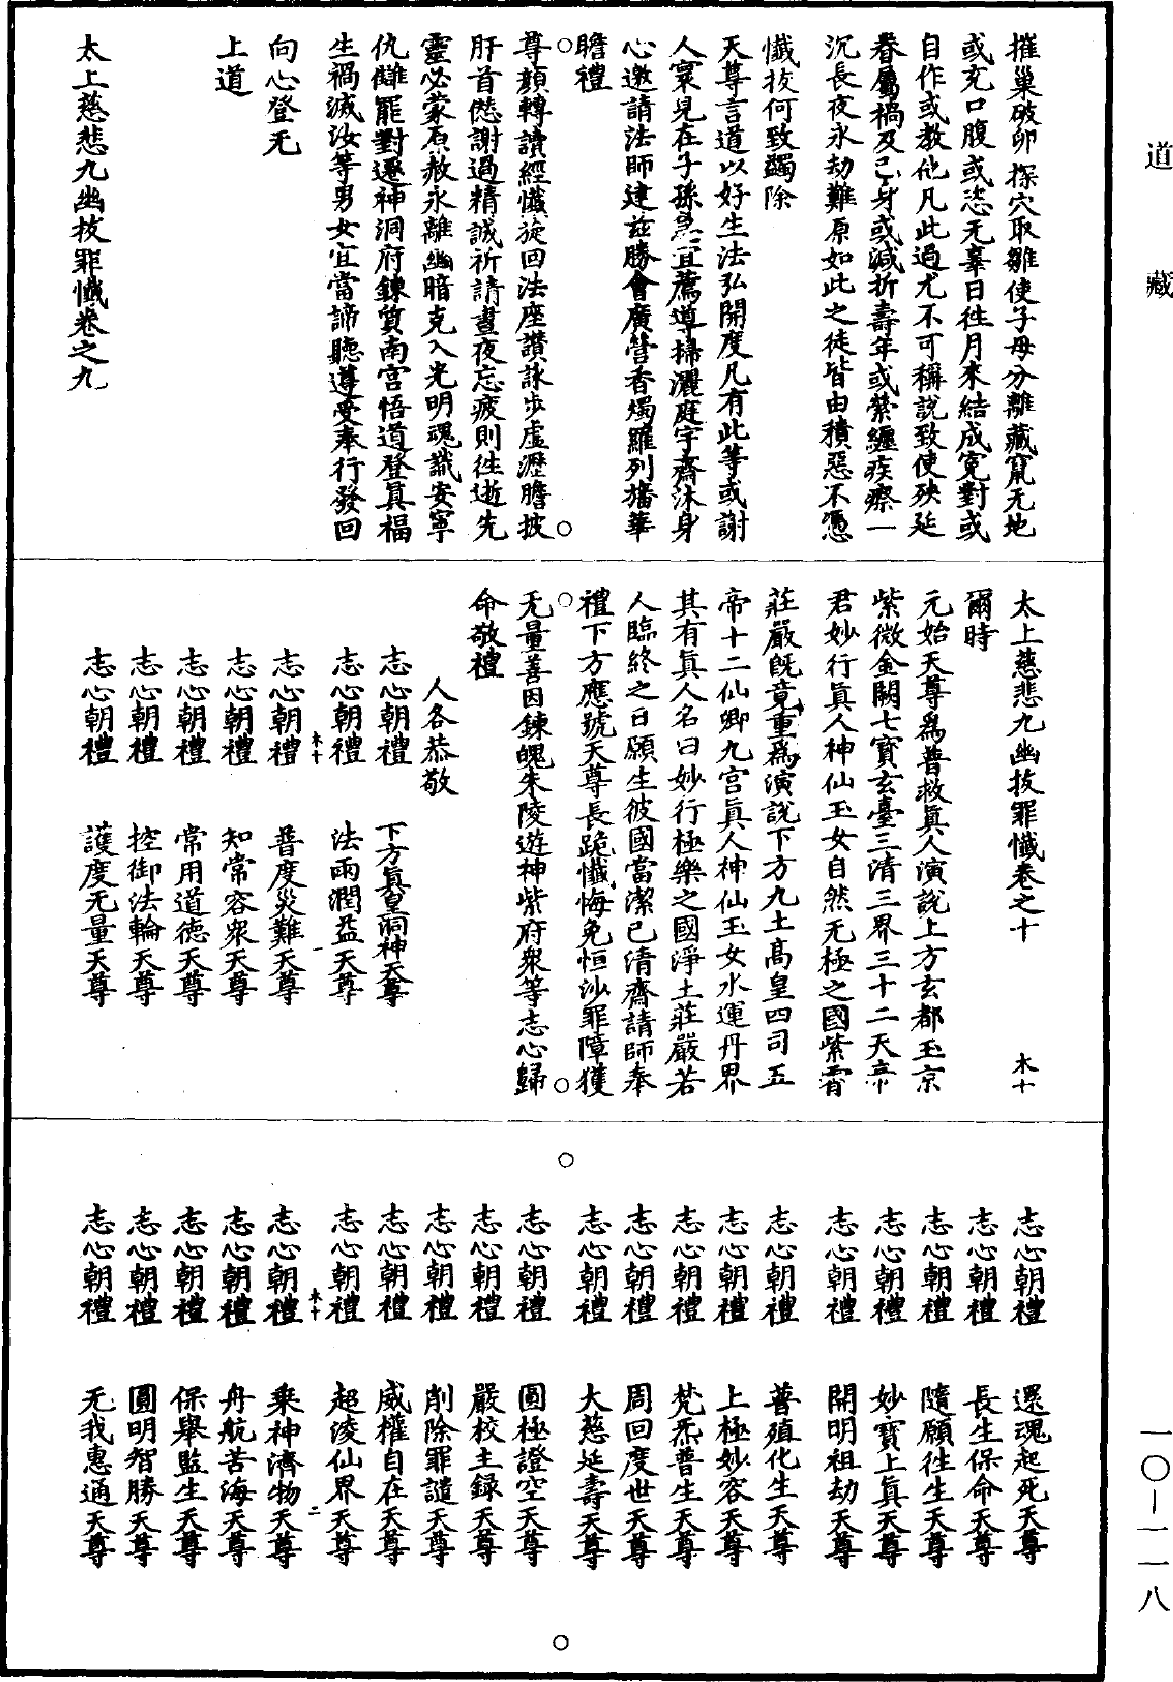 道藏
摧巢破卵探穴取雛使子母分離藏竄无地
或充口腹或恣无辜日往月來結成寃對或
自作或教他凡此過尤不可稱說致使殃延
眷屬禍及己身或減折壽年或縈纏疾瘵一
沉長夜永劫難原如此之徒皆由積惡不憑
懺拔何致蠲除
天尊言道以好生法弘開度凡有此等或謝
人寰見在子孫急宜薦導掃灑庭宇齋沐身
心邀請法師建茲勝會廣營香燭羅列旛華
瞻禮
尊顏轉讀經懺旋回法座讚詠步虛瀝膽披
肝首愆謝過精誠祈請晝夜忘疲則往逝先
靈必蒙原赦永離幽暗克入光明魂識安寧
仇讎罷對遷神洞府鍊質南宮悟道登真福
生禍滅汝等男女宜當諦聽遵受奉行發回
向心登无
上道
太上慈悲九幽拔罪懺卷之九
太上慈悲九幽拔罪懺卷之十 木十
爾時
元始天尊為普救真人演說上方玄都玉京
紫微金闕七寶玄臺三清三界三十二天帝
君妙行真人神仙玉女自然无極之國紫霄
莊嚴旣竟重為演說下方九土高皇四司五
帝十二仙卿九宮真人神仙玉女水運丹界
其有真人名曰妙行極樂之國淨土莊嚴若
人臨終之日願生彼國當潔己清齋請師奉
禮下方應號天尊長跪懺悔免恒沙罪障獲
无量善因鍊魄朱陵遊神紫府衆等志心歸
命敬禮
人各恭敬
志心朝禮 下方真皇洞神天尊
志心朝禮 法雨潤益天尊
木十 一
志心朝禮 普度災難天尊
志心朝禮 知常容衆天尊
志心朝禮 常用道德天尊
志心朝禮 控御法輪天尊
志心朝禮 護度无量天尊
志心朝禮 還魂起死天尊
志心朝禮 長生保命天尊
志心朝禮 隨願往生天尊
志心朝禮 妙寶上真天尊
志心朝禮 開明祖劫天尊
志心朝禮 普殖化生天尊
志心朝禮 上極妙容天尊
志心朝禮 梵炁普生天尊
志心朝禮 周回度世天尊
志心朝禮 大慈延壽天尊
志心朝禮 圓極證空天尊
志心朝禮 嚴校主錄天尊
志心朝禮 削除罪譴天尊
志心朝禮 威權自在天尊
志心朝禮 超淩仙界天尊
木十 二
志心朝禮 乘神濟物天尊
志心朝禮 舟航苦海天尊
志心朝禮 保舉監生天尊
志心朝禮 圓明智勝天尊
志心朝禮 无我惠通天尊
一〇—一一八